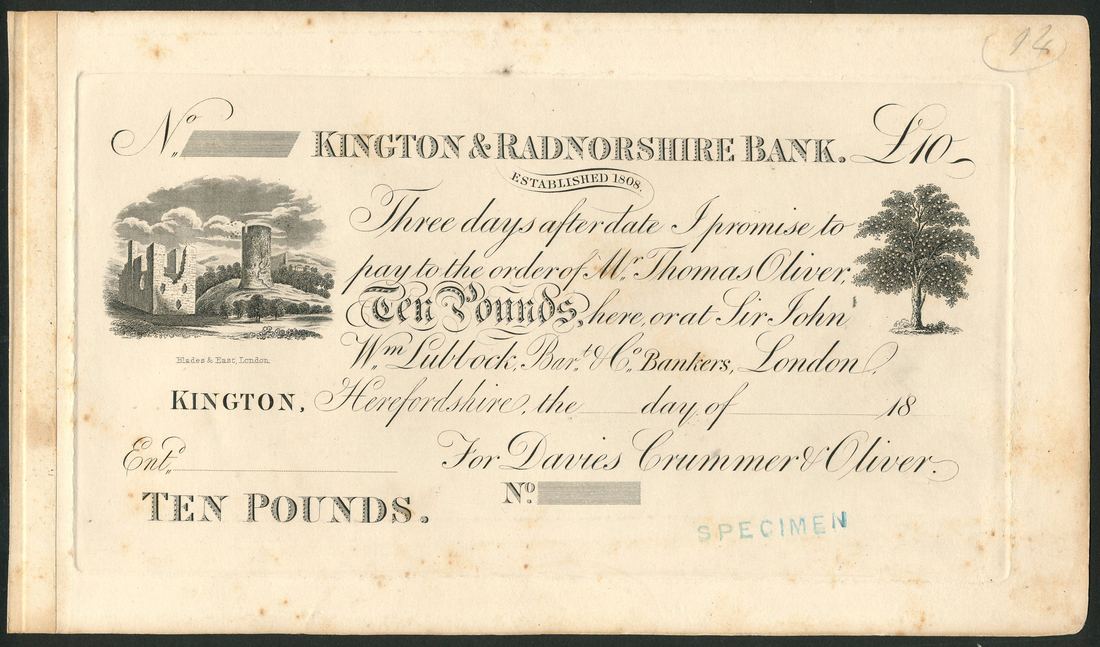 18
No. KINGTON & RADNORSHIRE BANK. £10
ESTABLISHED 1808.
Three days after date I promise to
pay to the order of Mr. Thomas Oliver,
Ten Pounds, here, or at Sir John
Wm. Lubbock, Bart. & Co. Bankers, London.
Blades & East, London.
KINGTON, Herefordshire, the day of 18
Entd. For Davies Crummer & Oliver.
No.
TEN POUNDS.
SPECIMEN